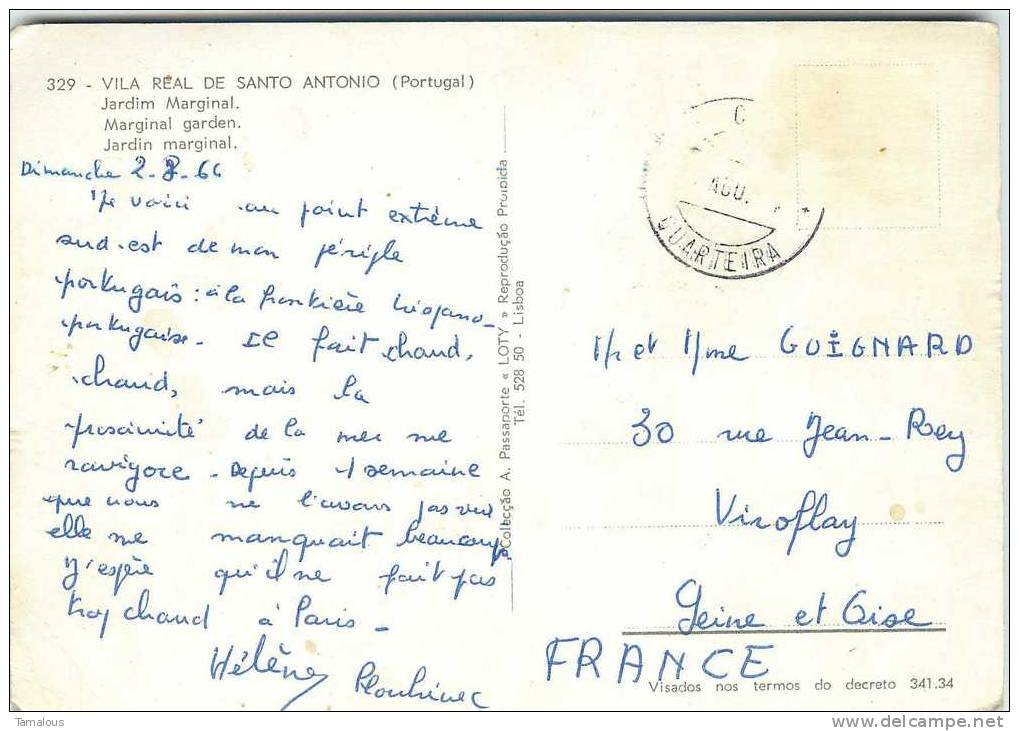 329 - VILA REAL DE SANTO ANTONIO (Portugal)
Jardim Marginal.
Marginal garden.
Jardin marginal.
Dimanche 2-8-64
Me voici au point extrême
sud-est de mon périple
portugais : à la frontière hispano-
portugaise. Il fait chaud,
chaud, mais la
proximité de la mer me
ravigore. Depuis 1 semaine
que nous ne l'avons pas vue
elle me manquait beaucoup.
J'espère qu'il ne fait pas
trop chaud à Paris -
Hélène
Colecção A. Passaporte « LOTY » Reprodução Proibida
Tél. 528 50 - Lisboa
AGO.
QUARTEIRA
Mr et Mme GUIGNARD
30 rue Jean-Rey
Viroflay
Seine et Oise
FRANCE
Visados nos termos do decreto 341.34
Tamalous
http://www.delcampe.net